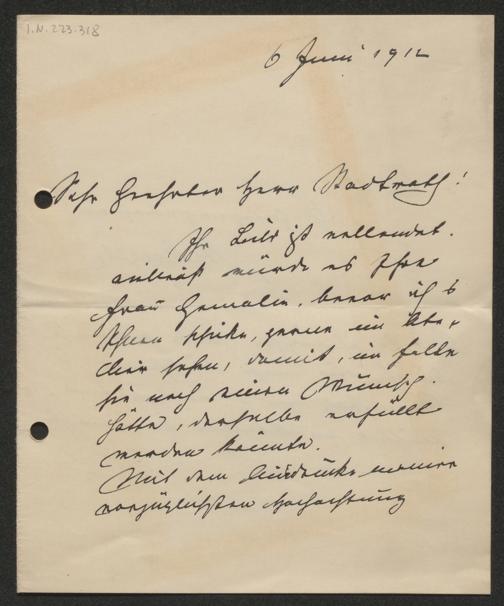 I.N. 223.318
6 Juni 1912
Sehr Geehrter Herr Stadtrath!
Ihr Bild ist vollendet.
vielleicht würde es Ihre
Frau Gemalin, bevor ich es
Ihnen schicke, gerne im Ate-
lier sehen, damit, im falle
sie noch einen Wunsch
hätte, derselbe erfüllt
werden könnte.
Mit dem Ausdrucke meiner
vorzüglichsten Hochachtung